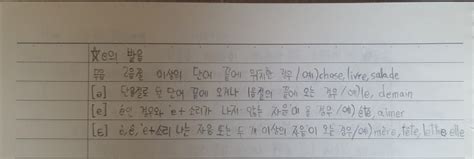 ☆e의 발음
무음 2음절 이상의 단어 끝에 위치한 경우/예)chose, livre, salade
[ə] 단음절로 된 단어 끝에 오거나 1음절의 끝에 오는 경우/예)le, demain
[e] é인 경우와 'e+소리가 나지 않는 자음'이 올 경우/예) été, aimer
[ɛ] è, ê, 'e+소리 나는 자음 또는 두 개 이상의 자음'이 오는 경우/예)mère, tête, elle